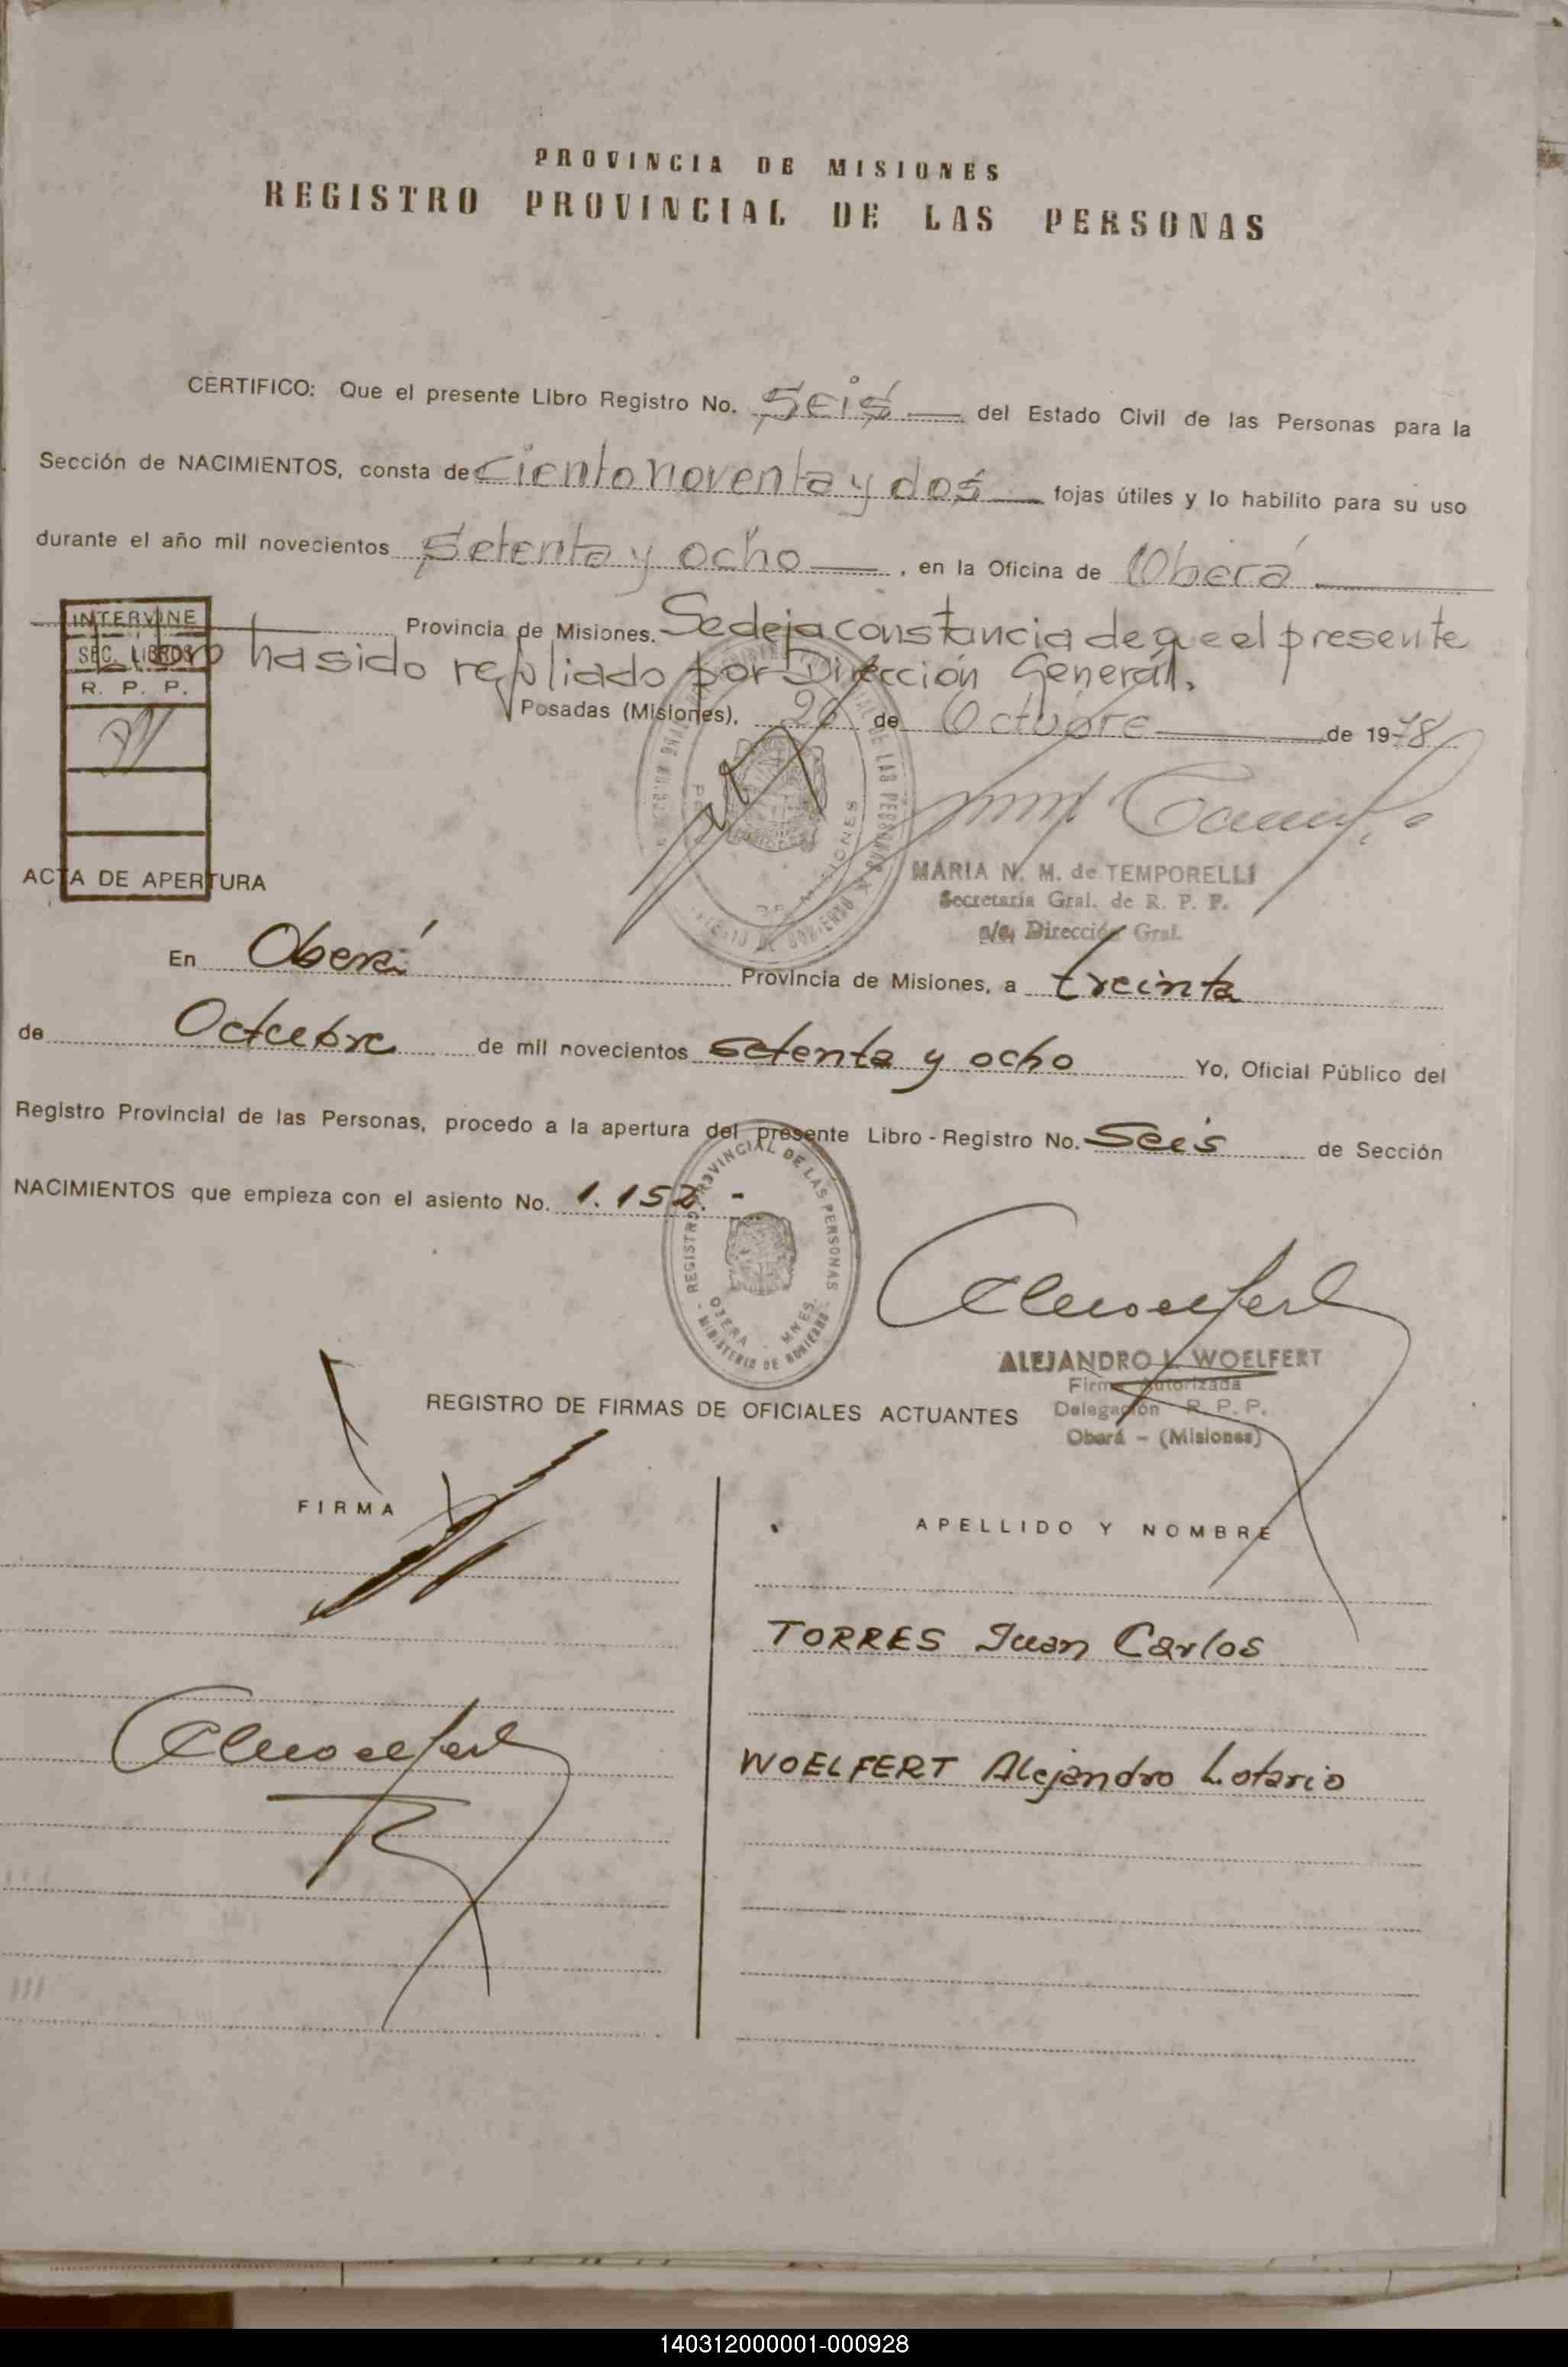 PROVINCIA DE MISIONES
REGISTRO PROVINCIAL DE LAS PERSONAS
CERTIFICO: Que el presente Libro Registro No. Seis del Estado Civil de las Personas para la
Sección de NACIMIENTOS, consta de Ciento noventa y dos fojas útiles y lo habilito para su uso
durante el año mil novecientos Setenta y ocho, en la Oficina de Oberá
INTERVINE
SEC. LIBROS
R. P. P.
Provincia de Misiones. Se deja constancia de que el presente
Libro ha sido refoliado por Dirección General.
Posadas (Misiones), 26 de Octubre de 1978
MARIA N. M. de TEMPORELLI
Secretaria Gral. de R. P. P.
a/c. Dirección Gral.
ACTA DE APERTURA
En Oberá Provincia de Misiones, a treinta
de Octubre de mil novecientos setenta y ocho Yo, Oficial Público del
Registro Provincial de las Personas, procedo a la apertura del presente Libro - Registro No. Seis de Sección
NACIMIENTOS que empieza con el asiento No. 1.152.-
REGISTRO PROVINCIAL DE LAS PERSONAS
OBERA - MNES.
MINISTERIO DE GOBIERNO
ALEJANDRO L. WOELFERT
Firma Autorizada
Delegación R. P. P.
Oberá - (Misiones)
REGISTRO DE FIRMAS DE OFICIALES ACTUANTES
FIRMA
APELLIDO Y NOMBRE
TORRES Juan Carlos
WOELFERT Alejandro Lotario
140312000001-000928